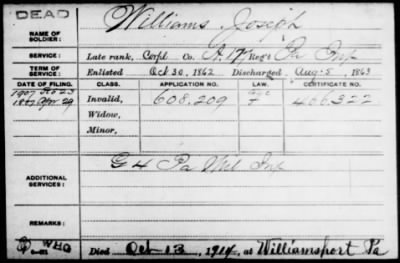 DEAD
NAME OF SOLDIER: Williams, Joseph
SERVICE: Late rank, Corpl Co. A, 17 Reg't Pa Inf
TERM OF SERVICE: Enlisted Oct 30, 1862 Discharged Aug-5, 1863
DATE OF FILING. CLASS. APPLICATION NO. LAW. CERTIFICATE NO.
1907
Apr 29 Invalid, 608.209 466.322
Widow,
Minor,
ADDITIONAL SERVICES: G 4 Pa Mil Inf
REMARKS:
WHG
Died Oct 13, 1914, at Williamsport Pa